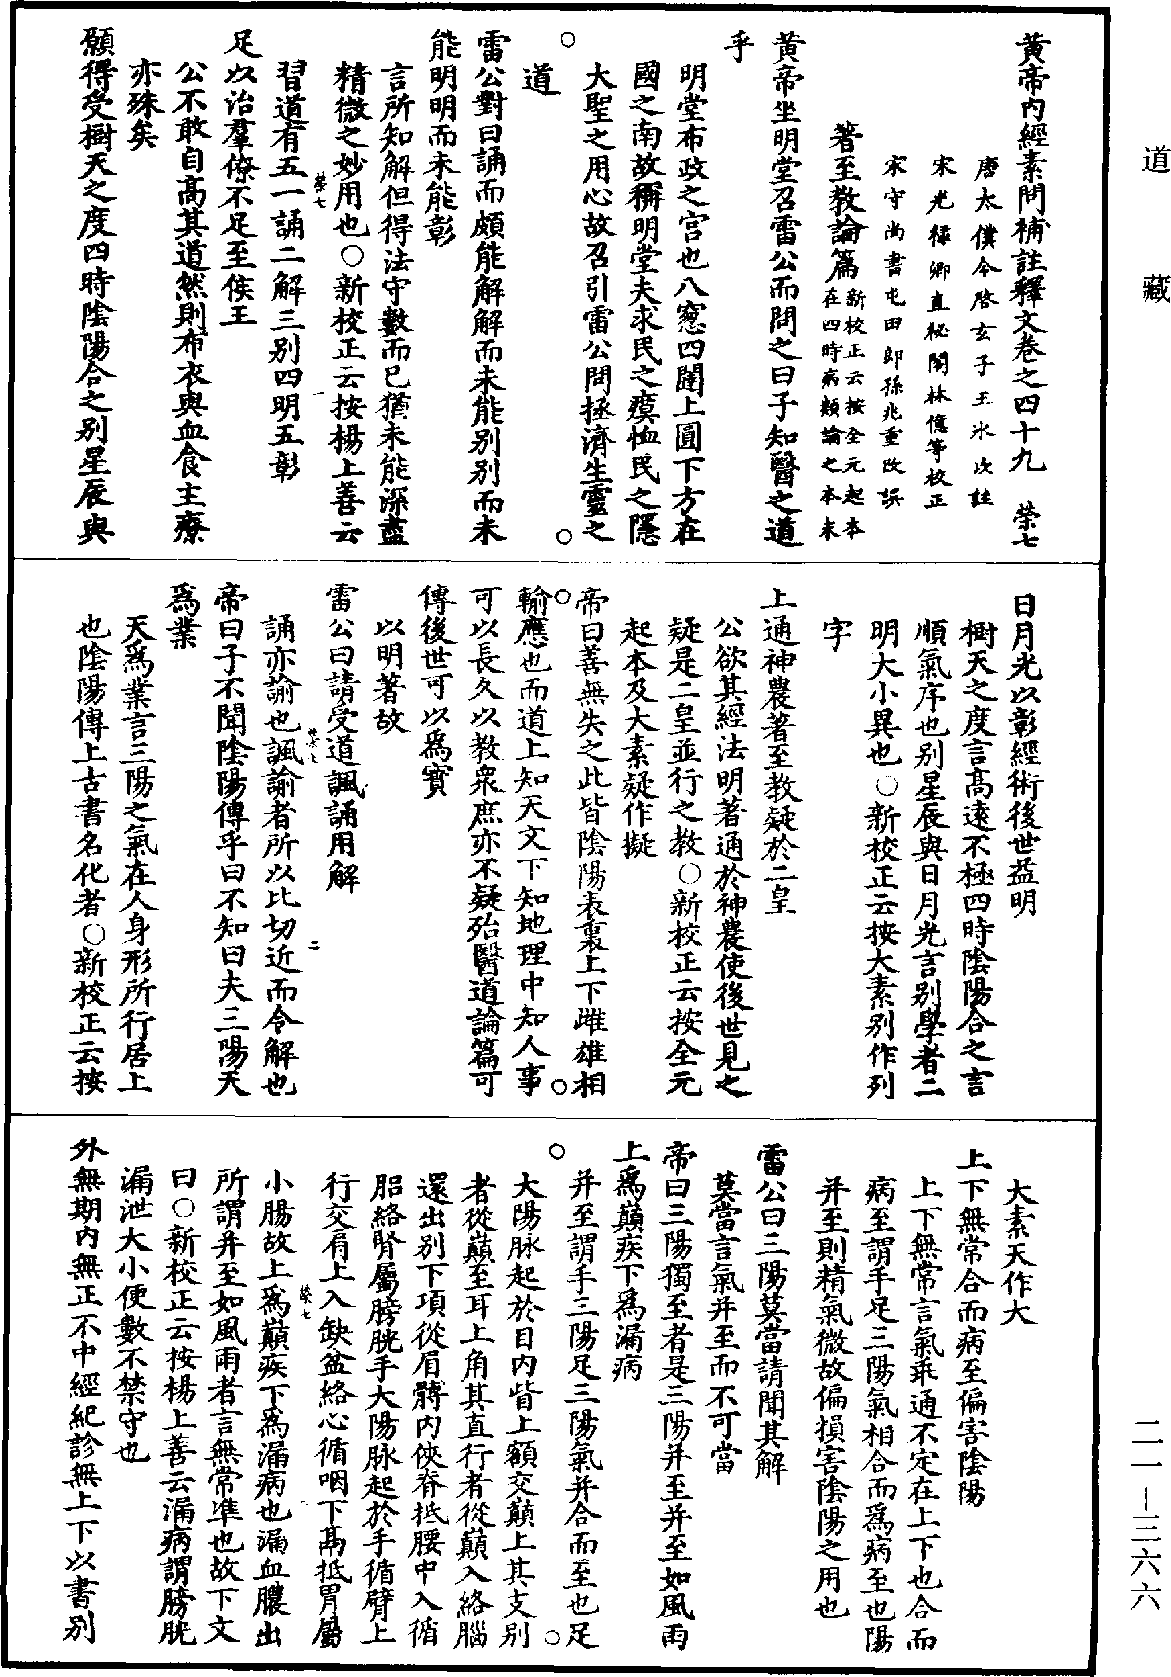 道　藏
黄帝内經素問補註釋文卷之四十九　榮七
唐太僕令啓玄子王冰次註
宋光祿卿直秘閣林億等校正
宋守尚書屯田郎孫兆重改誤
著至教論篇新校正云按全元起本在四時病類論之本末
黄帝坐明堂召雷公而問之曰子知醫之道
乎
明堂布政之宫也八窻四闥上圓下方在
國之南故稱明堂夫求民之瘼恤民之隱
大聖之用心故召引雷公問拯濟生靈之
道
雷公對曰誦而頗能解解而未能别别而未
能明明而未能彰
言所知解但得法守數而已猶未能深盡
精微之妙用也○新校正云按楊上善云
習道有五一誦二解三别四明五彰
足以治羣僚不足至侯王
公不敢自高其道然則布衣與血食主療
亦殊矣
願得受樹天之度四時陰陽合之别星辰與
日月光以彰經術後世益明
樹天之度言高遠不極四時陰陽合之言
順氣序也别星辰與日月光言别學者二
明大小異也○新校正云按大素别作列
字
上通神農著至教疑於二皇
公欲其經法明著通於神農使後世見之
疑是二皇並行之教○新校正云按全元
起本及大素疑作擬
帝曰善無失之此皆陰陽表裏上下雌雄相
輸應也而道上知天文下知地理中知人事
可以長久以教衆庶亦不疑殆醫道論篇可
傳後世可以爲寳
以明著故
雷公曰請受道諷誦用解
誦亦諭也諷諭者所以比切近而令解也
帝曰子不聞陰陽傳乎曰不知曰夫三陽天
爲業
天爲業言三陽之氣在人身形所行居上
也陰陽傳上古書名化者○新校正云按
大素天作大
上下無常合而病至偏害陰陽
上下無常言氣乖通不定在上下也合而
病至謂手足三陽氣相合而爲病至也陽
并至則精氣微故偏損害陰陽之用也
雷公曰三陽莫當請聞其解
莫當言氣并至而不可當
帝曰三陽獨至者是三陽并至并至如風雨
上爲巔疾下爲漏病
并至謂手三陽足三陽氣并合而至也足
大陽脉起於目内眥上額交巔上其支别
者從巔至耳上角其直行者從巔入絡腦
還出别下項從肩髆内俠脊抵腰中入循
膂絡腎屬膀胱手大陽脉起於手循臂上
行交肩上入缺盆絡心循咽下鬲抵胃屬
小腸故上爲巔疾下爲漏病也漏血膿出
所謂并至如風雨者言無常凖也故下文
曰○新校正云按楊上善云漏病謂膀胱
漏泄大小便數不禁守也
外無期内無正不中經紀診無上下以書别
二一—三六六